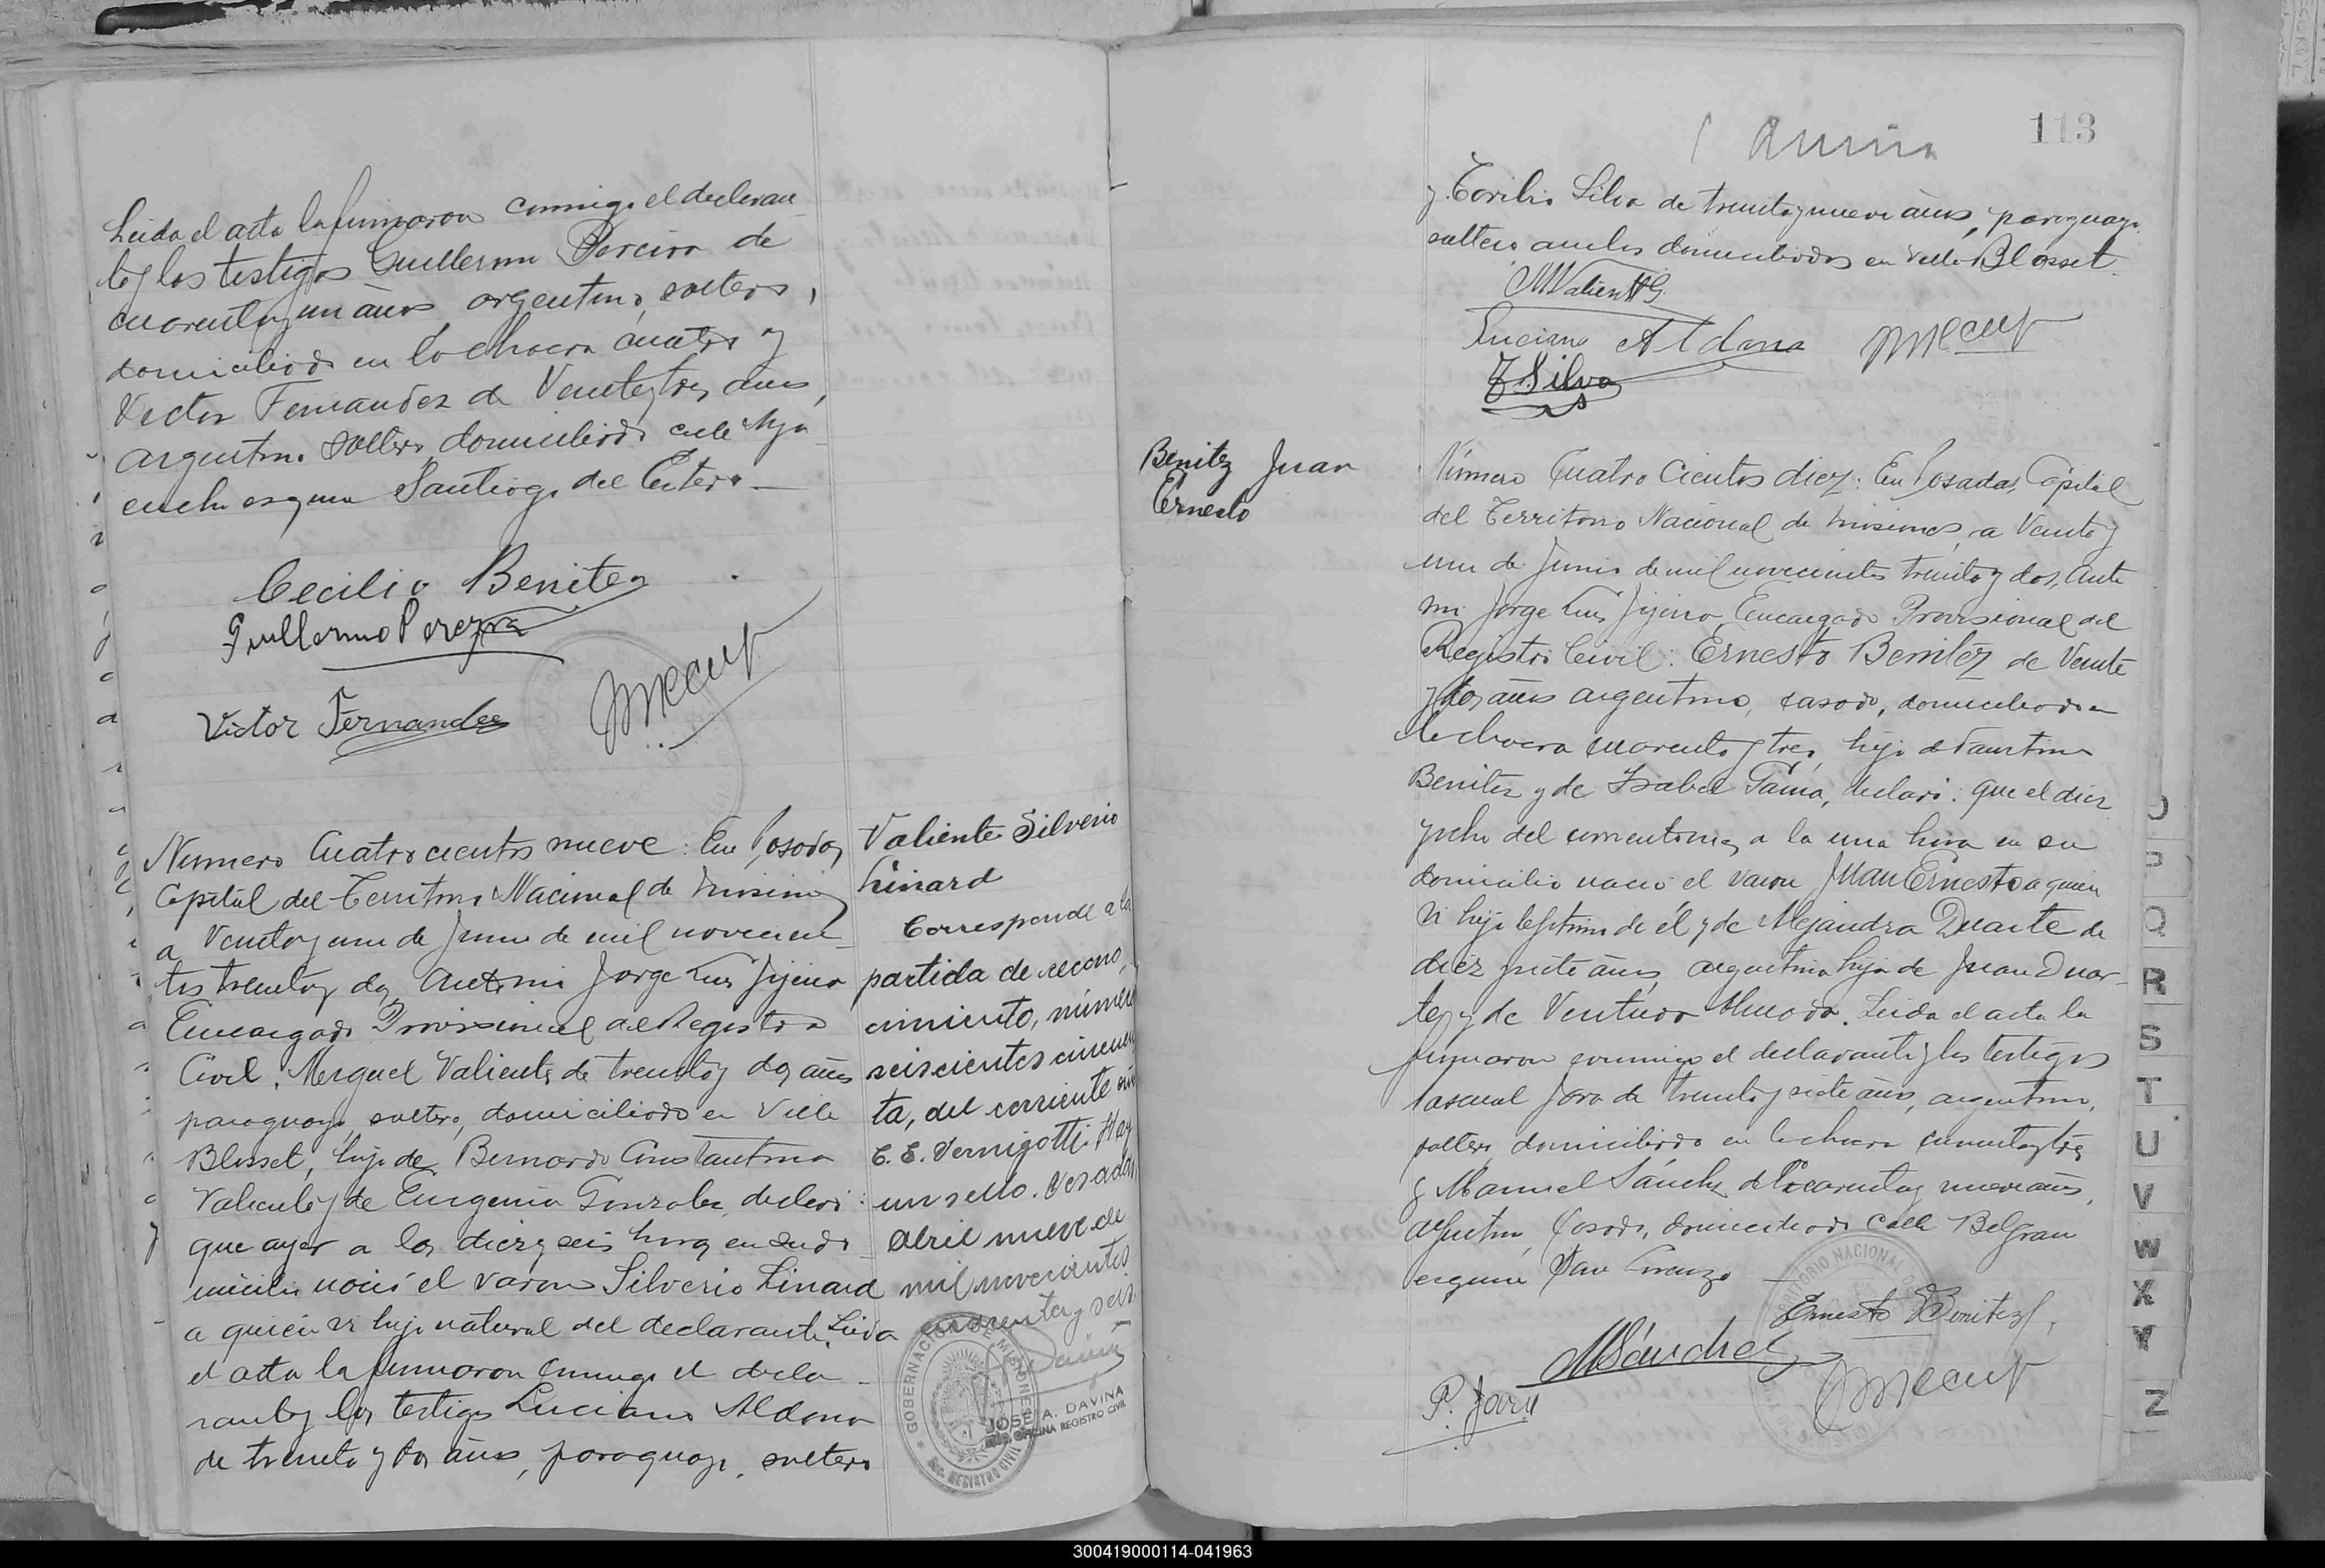 Leida el acta la firmaron conmigo el declaran-
te y los testigos Guillermo Pereira de
cuarenta y un años, argentino, soltero,
domiciliado en la chacra cuatro y
Victor Fernandez de Veinte y tres años,
argentino soltero, domiciliado calle Aya-
cucho esquina Santiago del Estero.—
Cecilio Benitez
Guillermo Pereyra
Victor Fernandez
Número Cuatrocientos nueve: En Posadas,
Capital del Territorio Nacional de Misiones
a Veinte y uno de Junio de mil novecien-
tos treinta y dos, Ante mi Jorge Luis
Encargado Provisional del Registro
Civil, Miguel Valiente, de treinta y dos años
paraguayo, soltero, domiciliado en Villa
Blosset, hijo de Bernardo Constantino
Valiente y de Eugenia Gonzalez, declaró:
que ayer a las diez y seis horas en su do-
micilio nació el varon Silverio Linard
a quien vi hijo natural del declarante. Leida
el acta la firmaron conmigo el decla-
rante y los testigos Luciano Aldana
de treinta y dos años, paraguayo, soltero
Valiente Silverio
Linard
Corresponde a la
partida de recono-
cimiento, número
seiscientos cincuen
ta, del corriente año
C. E. Vernigotti. Hay
un sello. Posadas,
abril nueve de
mil novecientos
cuarenta y seis.
GOBERNACION DE MISIONES
SEC. REGISTRO CIVIL
JOSE A. DAVINA
OFICINA REGISTRO CIVIL
113
y Toribio Silva de treinta y nueve años, paraguayo
soltero, ambos domiciliados en Villa Blosset.
MValienteG.
Luciano Aldana
T Silva
Benitez Juan
Ernesto
Número Cuatro Cientos diez: En Posadas, Capital
del Territorio Nacional de Misiones, a Veinte y
uno de Junio de mil novecientos treinta y dos, Ante
mi Jorge Luis Encargado Provisional del
Registro Civil: Ernesto Benitez de Veinte
y dos años argentino, casado, domiciliado en
la chacra cuarenta y tres, hijo de Faustino
Benitez y de Isabel declaró: que el diez
y ocho del corriente mes, a la una hora en su
domicilio nació el varon Juan Ernesto a quien
vi hijo lejitimo de él y de Alejandra Duarte de
diez y siete años, argentina hija de Juan Duar-
te y de Ventura Leida el acta la
firmaron conmigo el declarante y los testigos
Pascual Jara de treinta y siete años, argentino,
soltero, domiciliado en la chacra cuarenta y tres
y Manuel Sánchez de cuarenta y nueve años,
argentino, casado, domiciliado calle Belgrano
esquina San Lorenzo —
Ernesto Benitez
MSánchez
P. Jara
TERRITORIO NACIONAL
O
P
Q
R
S
T
U
V
W
X
Y
Z
300419000114-041963